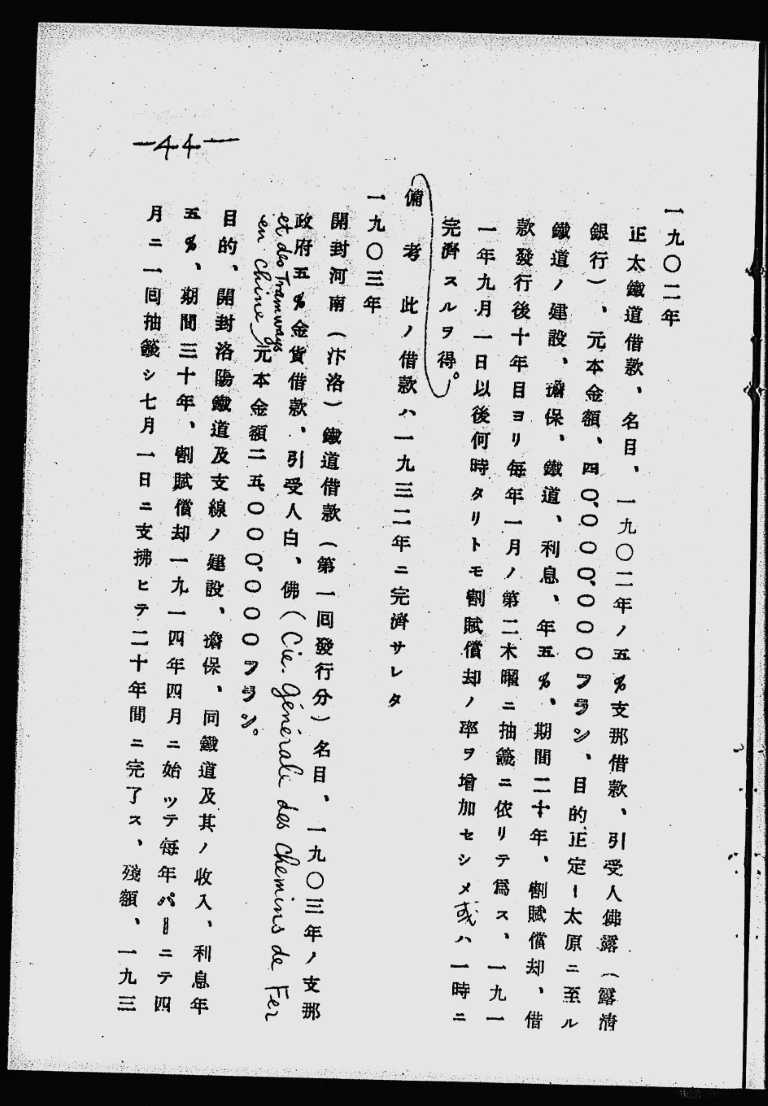 一九〇二年
正太鐵道借款、名目、一九〇二年ノ五%支那借款、引受人佛露（露淸
銀行）、元本金額、四〇,〇〇〇,〇〇〇フラン、目的正定ー太原ニ至ル
鐵道ノ建設、擔保、鐵道、利息、年五%、期間二十年、割賦償却、借
款發行後十年目ヨリ每年一月ノ第二木曜ニ抽籤ニ依リテ爲ス、一九一
一年九月一日以後何時タリトモ割賦償却ノ率ヲ增加セシメ或ハ一時ニ
完濟スルヲ得。
備考 此ノ借款ハ一九三二年ニ完濟サレタ
一九〇三年
開封河南（汴洛）鐵道借款（第一回發行分）名目、一九〇三年ノ支那
政府五%金貨借款、引受人白、佛（Cie. Générale des Chemins de Fer
et des Tramways
en Chine）元本金額二五,〇〇〇,〇〇〇フラン。
目的、開封洛陽鐵道及支線ノ建設、擔保、同鐵道及其ノ收入、利息年
五%、期間三十年、割賦償却一九一四年四月ニ始ツテ每年パーニテ四
月ニ一回抽籤シ七月一日ニ支拂ヒテ二十年間ニ完了ス、殘額、一九三
—44—